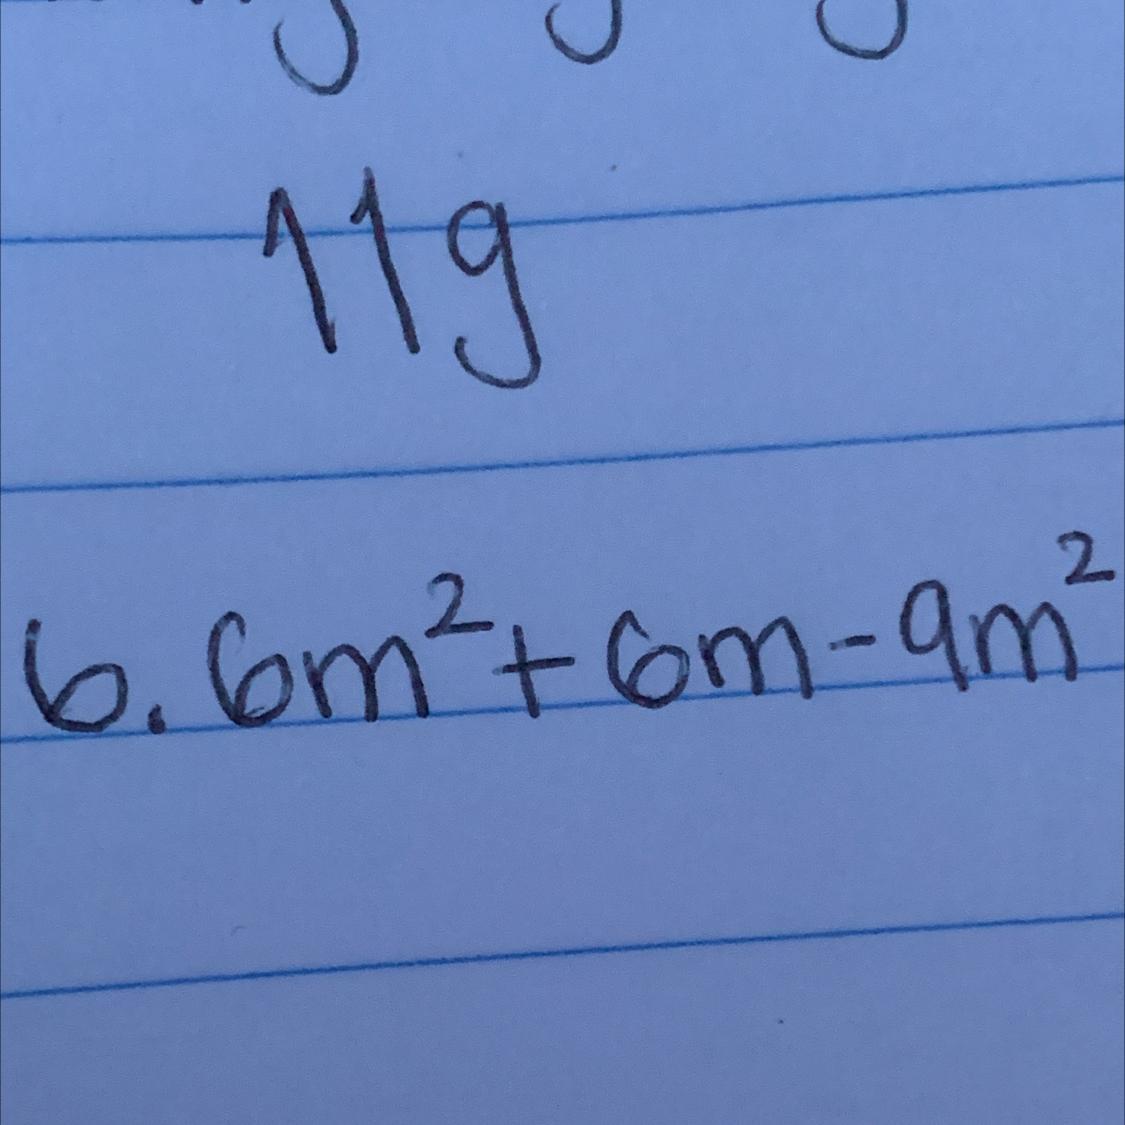 11g
6. 6m²+6m-9m²